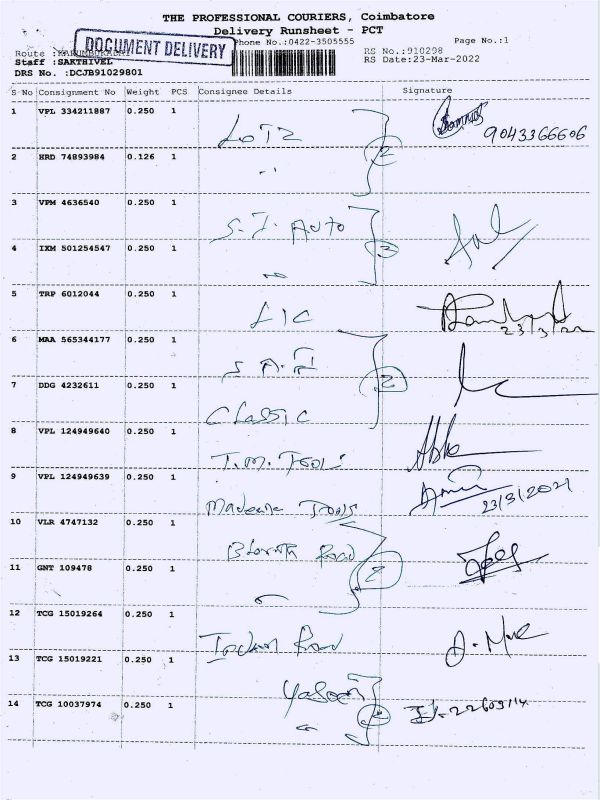 THE PROFESSIONAL COURIERS, Coimbatore
Delivery Runsheet - PCT
DOCUMENT DELIVERY
Phone No.:0422-3505555
Page No.:1
Route :
RS No.:910298
Staff : SAKTHIVEL
RS Date:23-Mar-2022
DRS No. :DCJB91029801
S No Consignment No Weight PCS Consignee Details Signature
1 VPL 334211887 0.250 1 9043366606
2 HRD 74893984 0.126 1 2
3 VPM 4636540 0.250 1 S.I. Auto
4 IXM 501254547 0.250 1
5 TRP 6012044 0.250 1 LIC 23/3/22
6 MAA 565344177 0.250 1 2
7 DDG 4232611 0.250 1 Classic
8 VPL 124949640 0.250 1 T.M.
9 VPL 124949639 0.250 1 Tools 23/3/2021
10 VLR 4747132 0.250 1 Road
11 GNT 109478 0.250 1 2
12 TCG 15019264 0.250 1
13 TCG 15019221 0.250 1
14 TCG 10037974 0.250 1